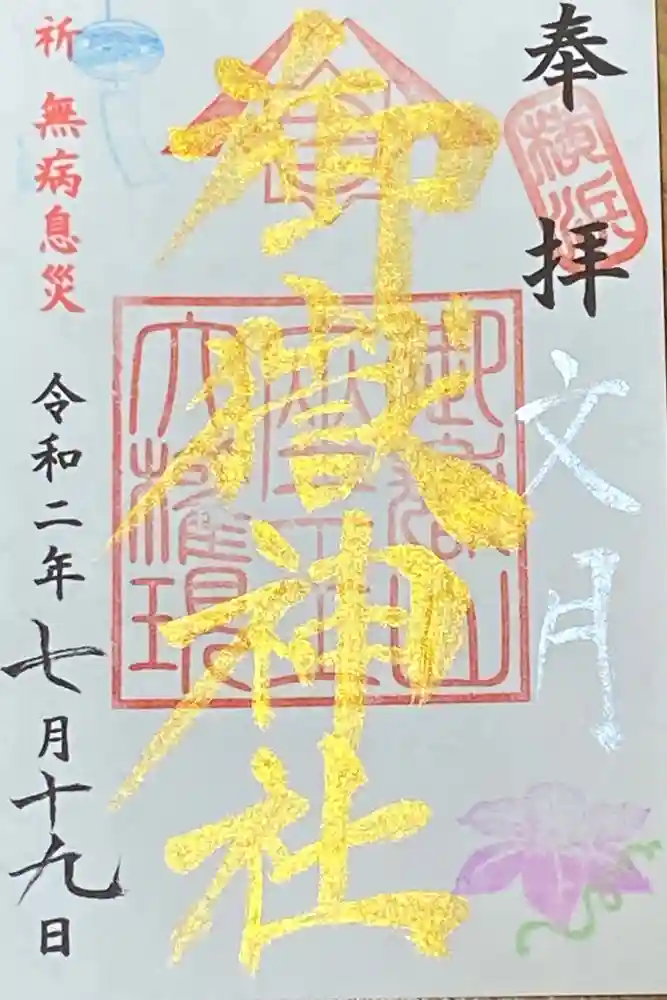 奉拝
横浜
文月
御嶽神社
御嶽山
蔵王
大権現
祈 無病息災
令和二年七月十九日